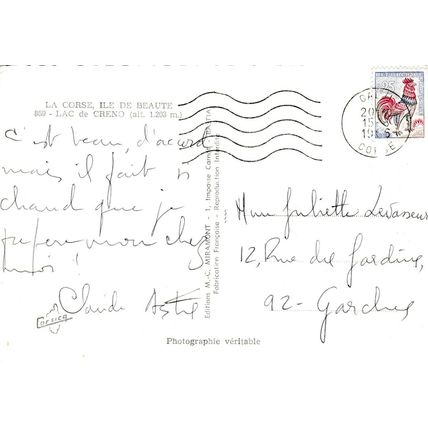 LA CORSE, ILE DE BEAUTE
859 - LAC de CRENO (alt. 1.203 m.)
C'est beau, d'accord
mais il fait si
chaud que je
préfère mon chez
moi !
Claude
CORSICA
Editions M.-C. MIRAMONT - 1, Impasse Carnot
Fabrication Française - Reproduction Interdite
CORSE
Mme Juliette Levasseur
12, Rue des Jardins,
92 - Garches
Photographie véritable